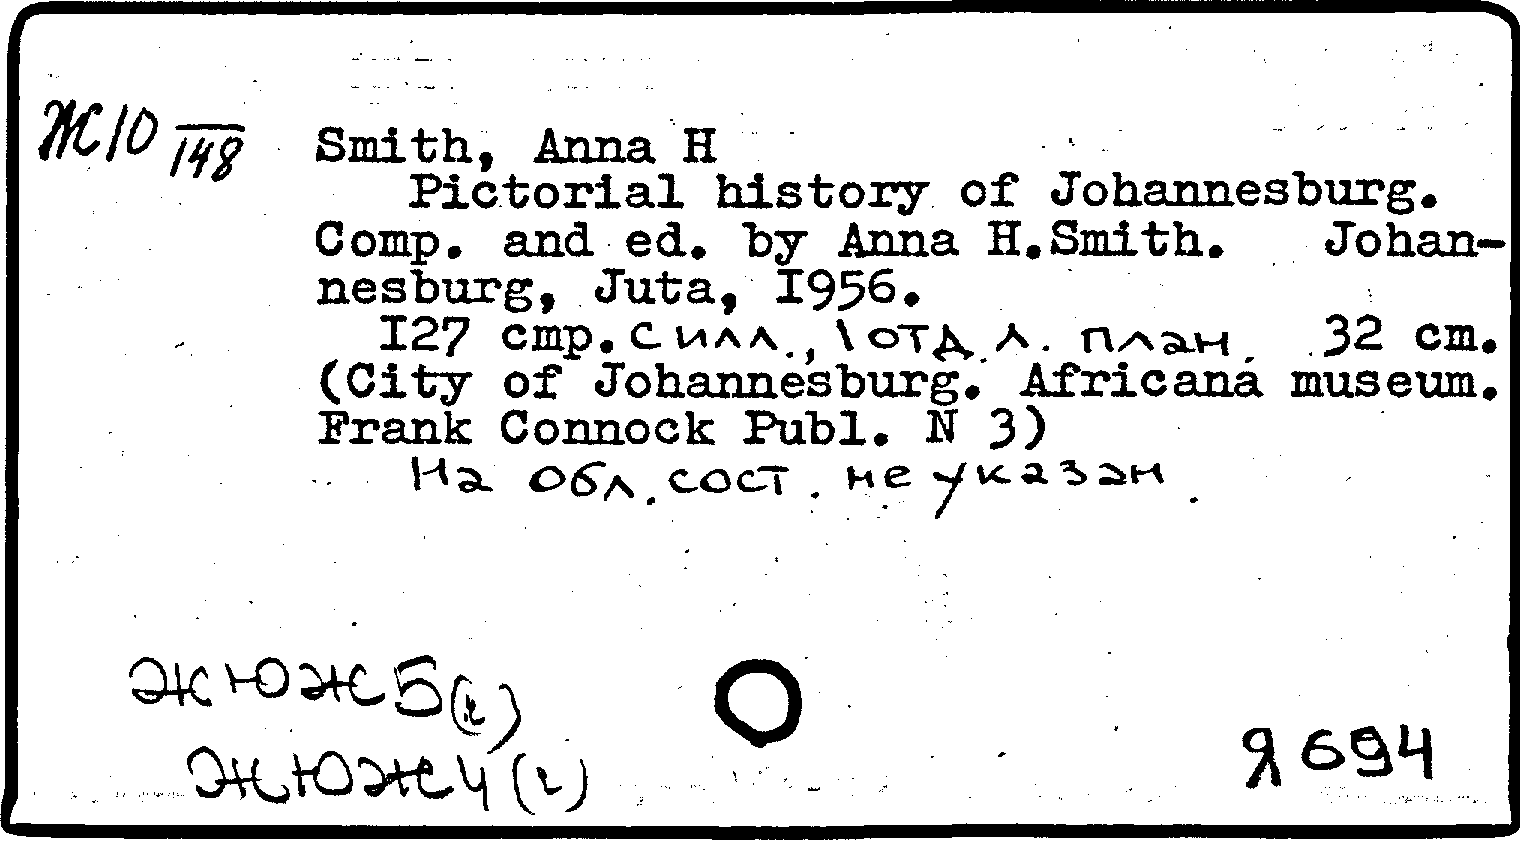 Ж10 148
Smith, Anna H
Pictorial history of Johannesburg.
Comp. and ed. by Anna H.Smith. Johan-
nesburg, Juta, I956.
I27 стр. с илл., 1 отд. л. план. 32 cm.
(City of Johannesburg. Africana museum.
Frank Connock Publ. N 3)
На обл. сост. не указан.
ЖЮЖ5(г)
ЖЮЖ4(г)
Я694